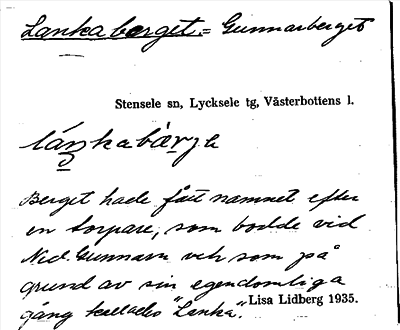 Lankaberget = Gunnarberget
Stensele sn, Lycksele tg, Västerbottens l.
láŋkabærge
Berget hade fått namnet efter
en torpare, som bodde vid
Ned. Gunnarn och som på
grund av sin egendomliga
gång kallades "Lanka".
Lisa Lidberg 1935.